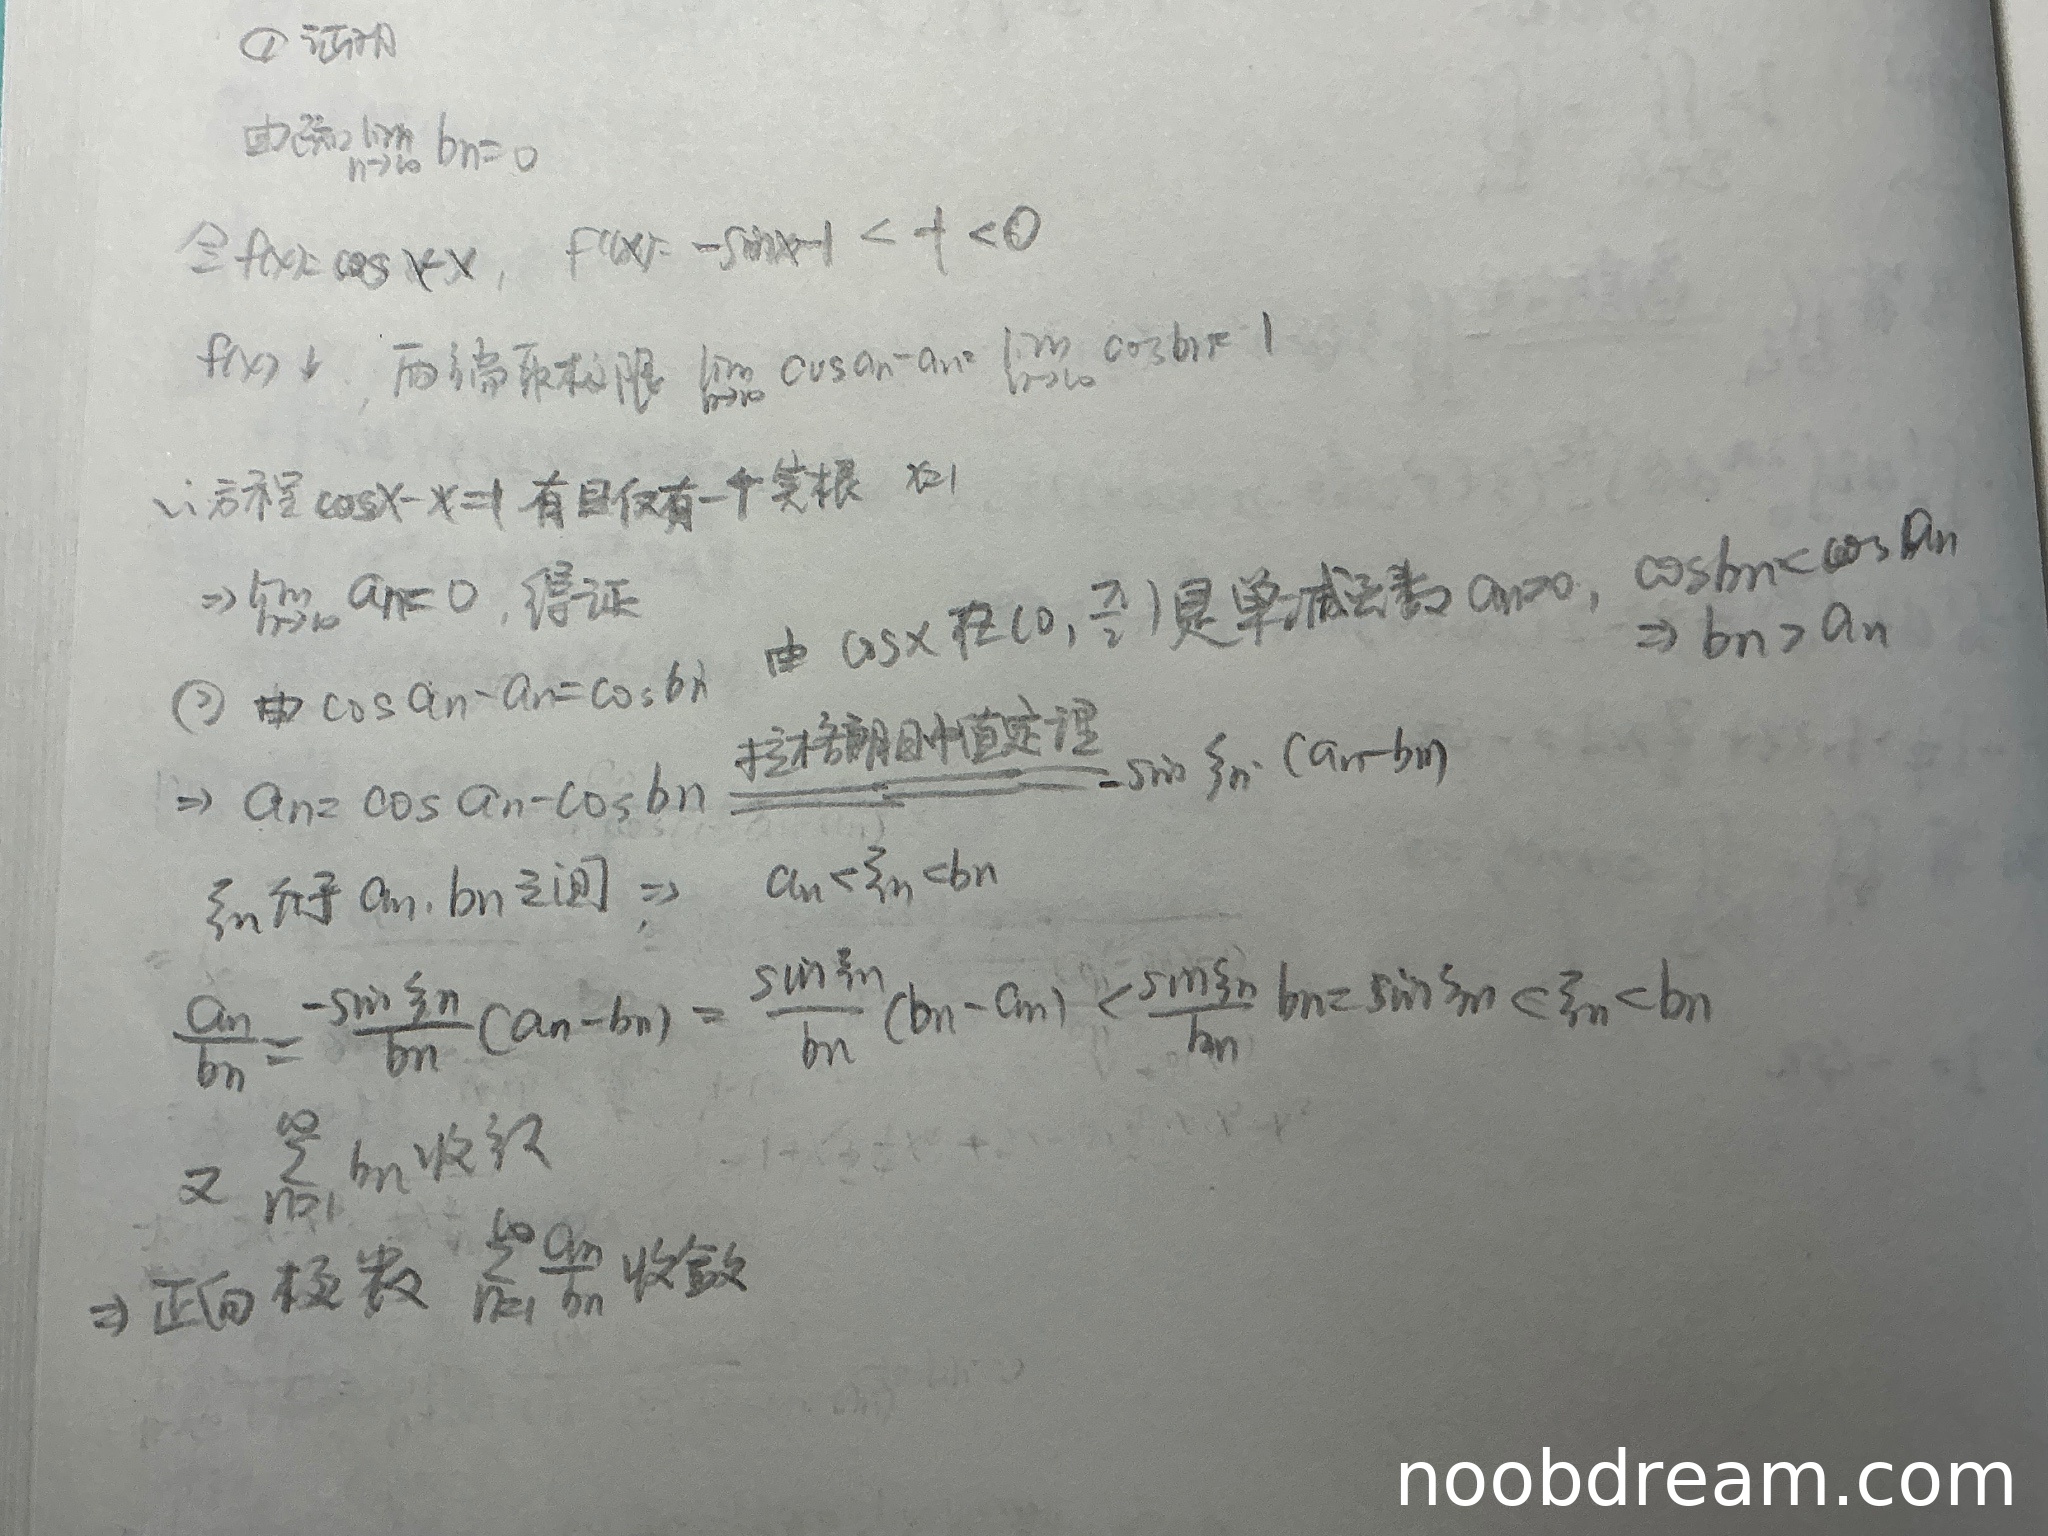 ① 证明
由题知 lim n→∞ bn=0
令f(x)=cosx-x, f'(x)=-sinx-1<-1<0
f(x)↓, 两端取极限 lim n→∞ cosan-an= lim n→∞ cosbn=1
∵方程cosx-x=1有且仅有一个实根 x=1
⇒ lim n→∞ an=0, 得证
② 由 cosan-an=cosbn 由 cosx 在(0, π/2)是单减函数 an>0, cosbn<cosan
⇒ bn>an
⇒ an=cosan-cosbn 拉格朗日中值定理 -sinξn·(an-bn)
ξn介于 an, bn之间 ⇒ an<ξn<bn
an/bn = -sinξn/bn (an-bn) = sinξn/bn (bn-an) < sinξn/bn bn= sinξn<ξn<bn
又 ∞∑n=1 bn收敛
⇒正向极数 ∞∑n=1 an/bn 收敛
noobdream.com